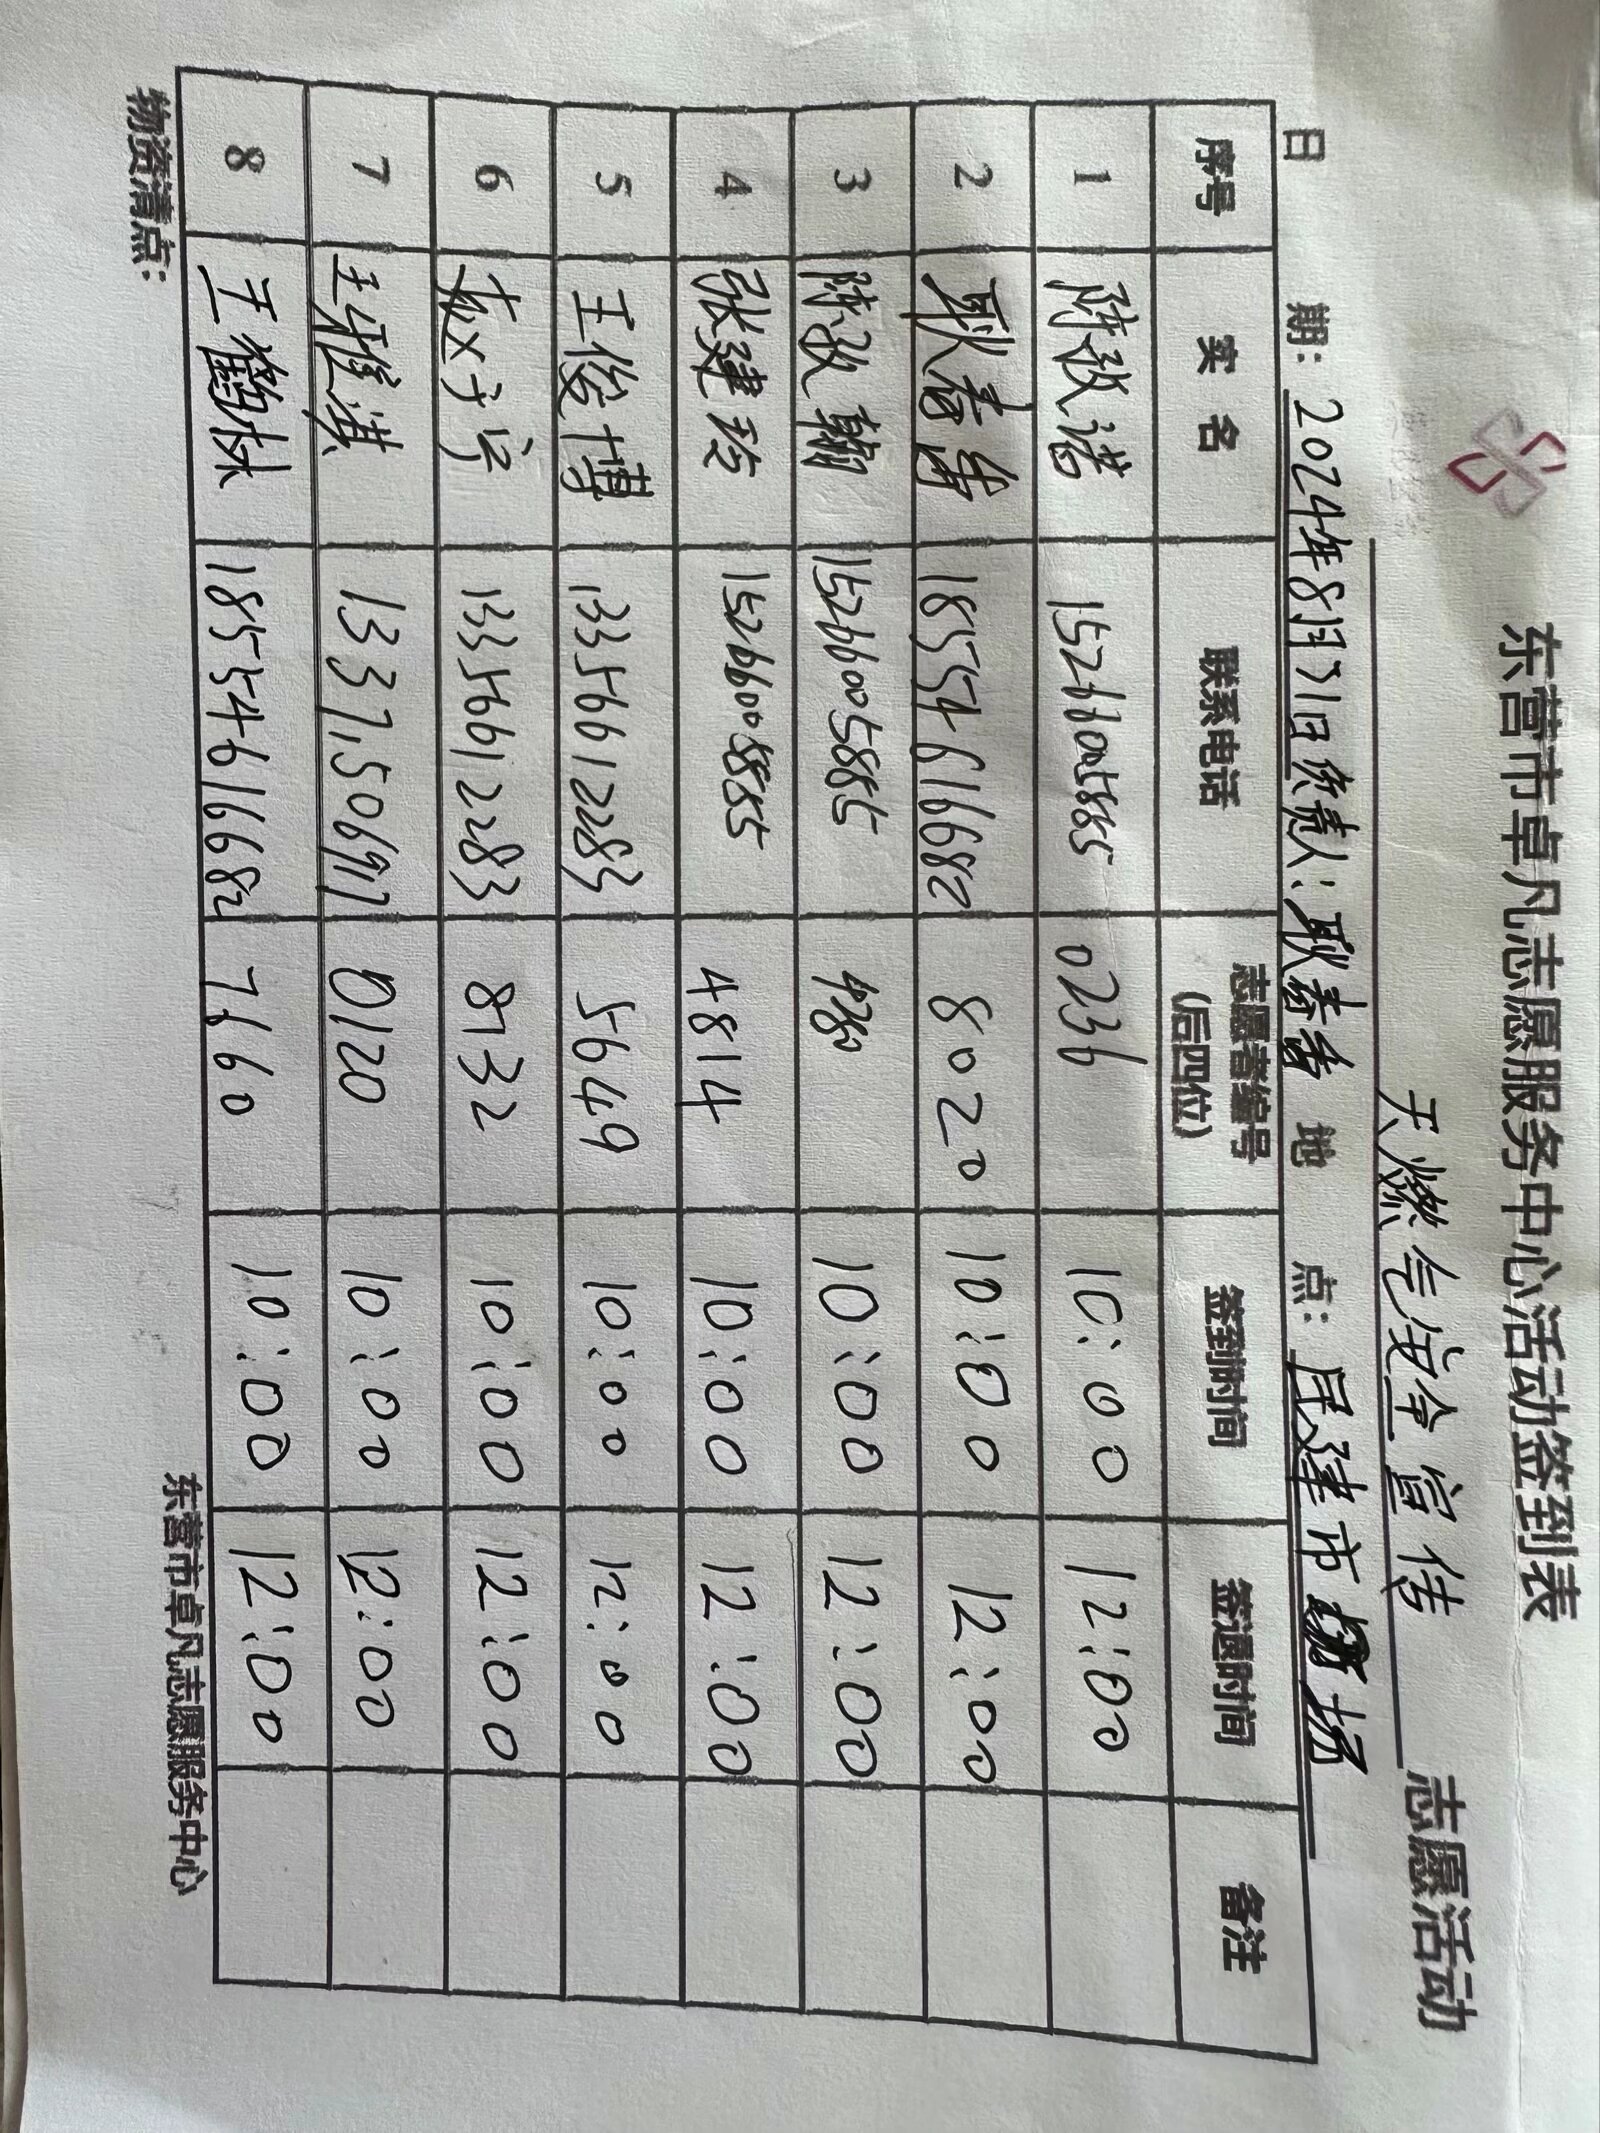 东营市卓凡志愿服务中心活动签到表
天燃气安全宣传 志愿活动
日 期: 2024年8月31日 负责人: 耿春青 地 点: 民建市场
序号 实 名 联系电话 志愿者编号 签到时间 签退时间 备注
(后四位)
1 陈毅诺 15266005885 0236 10:00 12:00
2 耿春青 18554616682 8020 10:00 12:00
3 陈毅翰 15266005885 10:00 12:00
4 张建玲 4814 10:00 12:00
5 王俊博 13356612283 5649 10:00 12:00
6 赵子宁 13356612283 8732 10:00 12:00
7 王雅淇 0120 10:00 12:00
8 王鹤林 18554616682 7660 10:00 12:00
物资清点: 东营市卓凡志愿服务中心